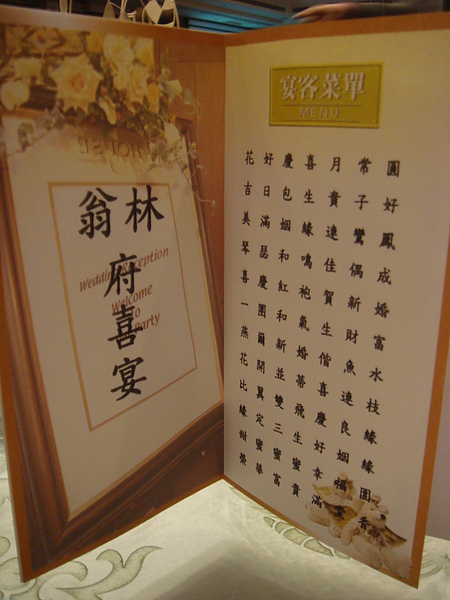 林翁
府喜宴
Wedding Reception
Welcome
to
Party
宴客菜單
MENU
花好慶喜月常圓
吉日包生貴子好
美滿姻緣連鸞鳳
琴瑟和鳴佳偶成
喜慶紅袍賀新婚
一團和氣生財富
燕爾新婚偕魚水
花開並蒂喜連枝
比翼雙飛慶良緣
緣定三生好姻緣
甜蜜蜜蜜幸福圓
榮華富貴滿堂香